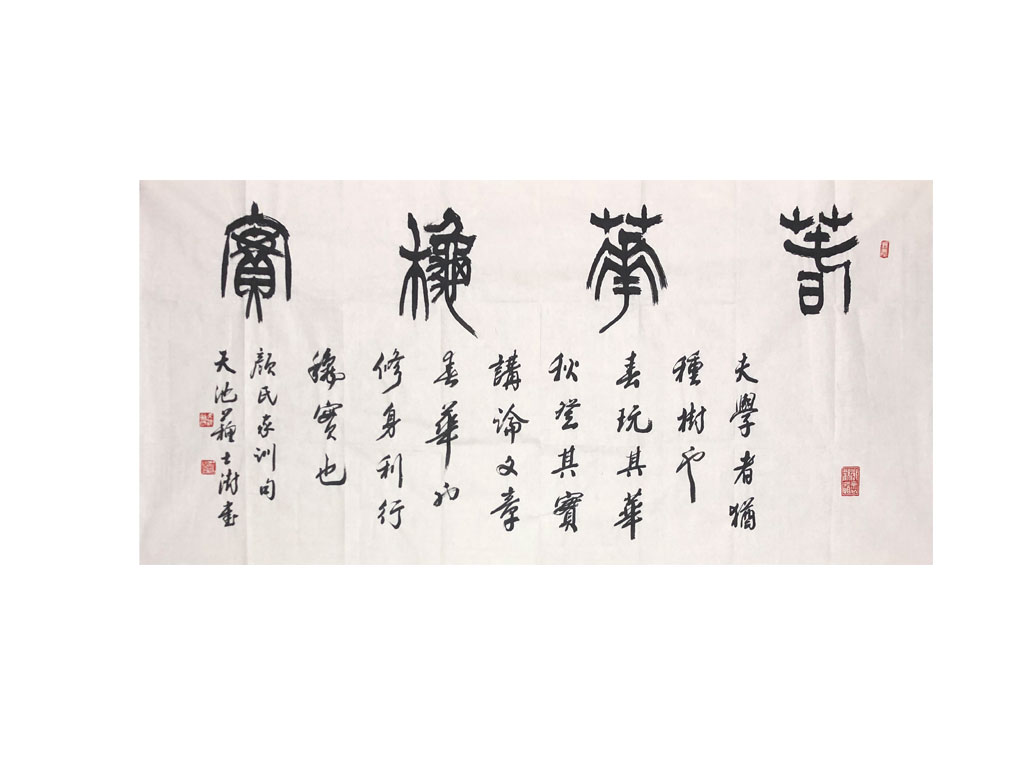 春華龝實
夫學者猶
種樹也
春玩其華
秋登其實
講論文章
春華也
修身利行
秋實也
顏氏家訓句
天池蘇士澍書